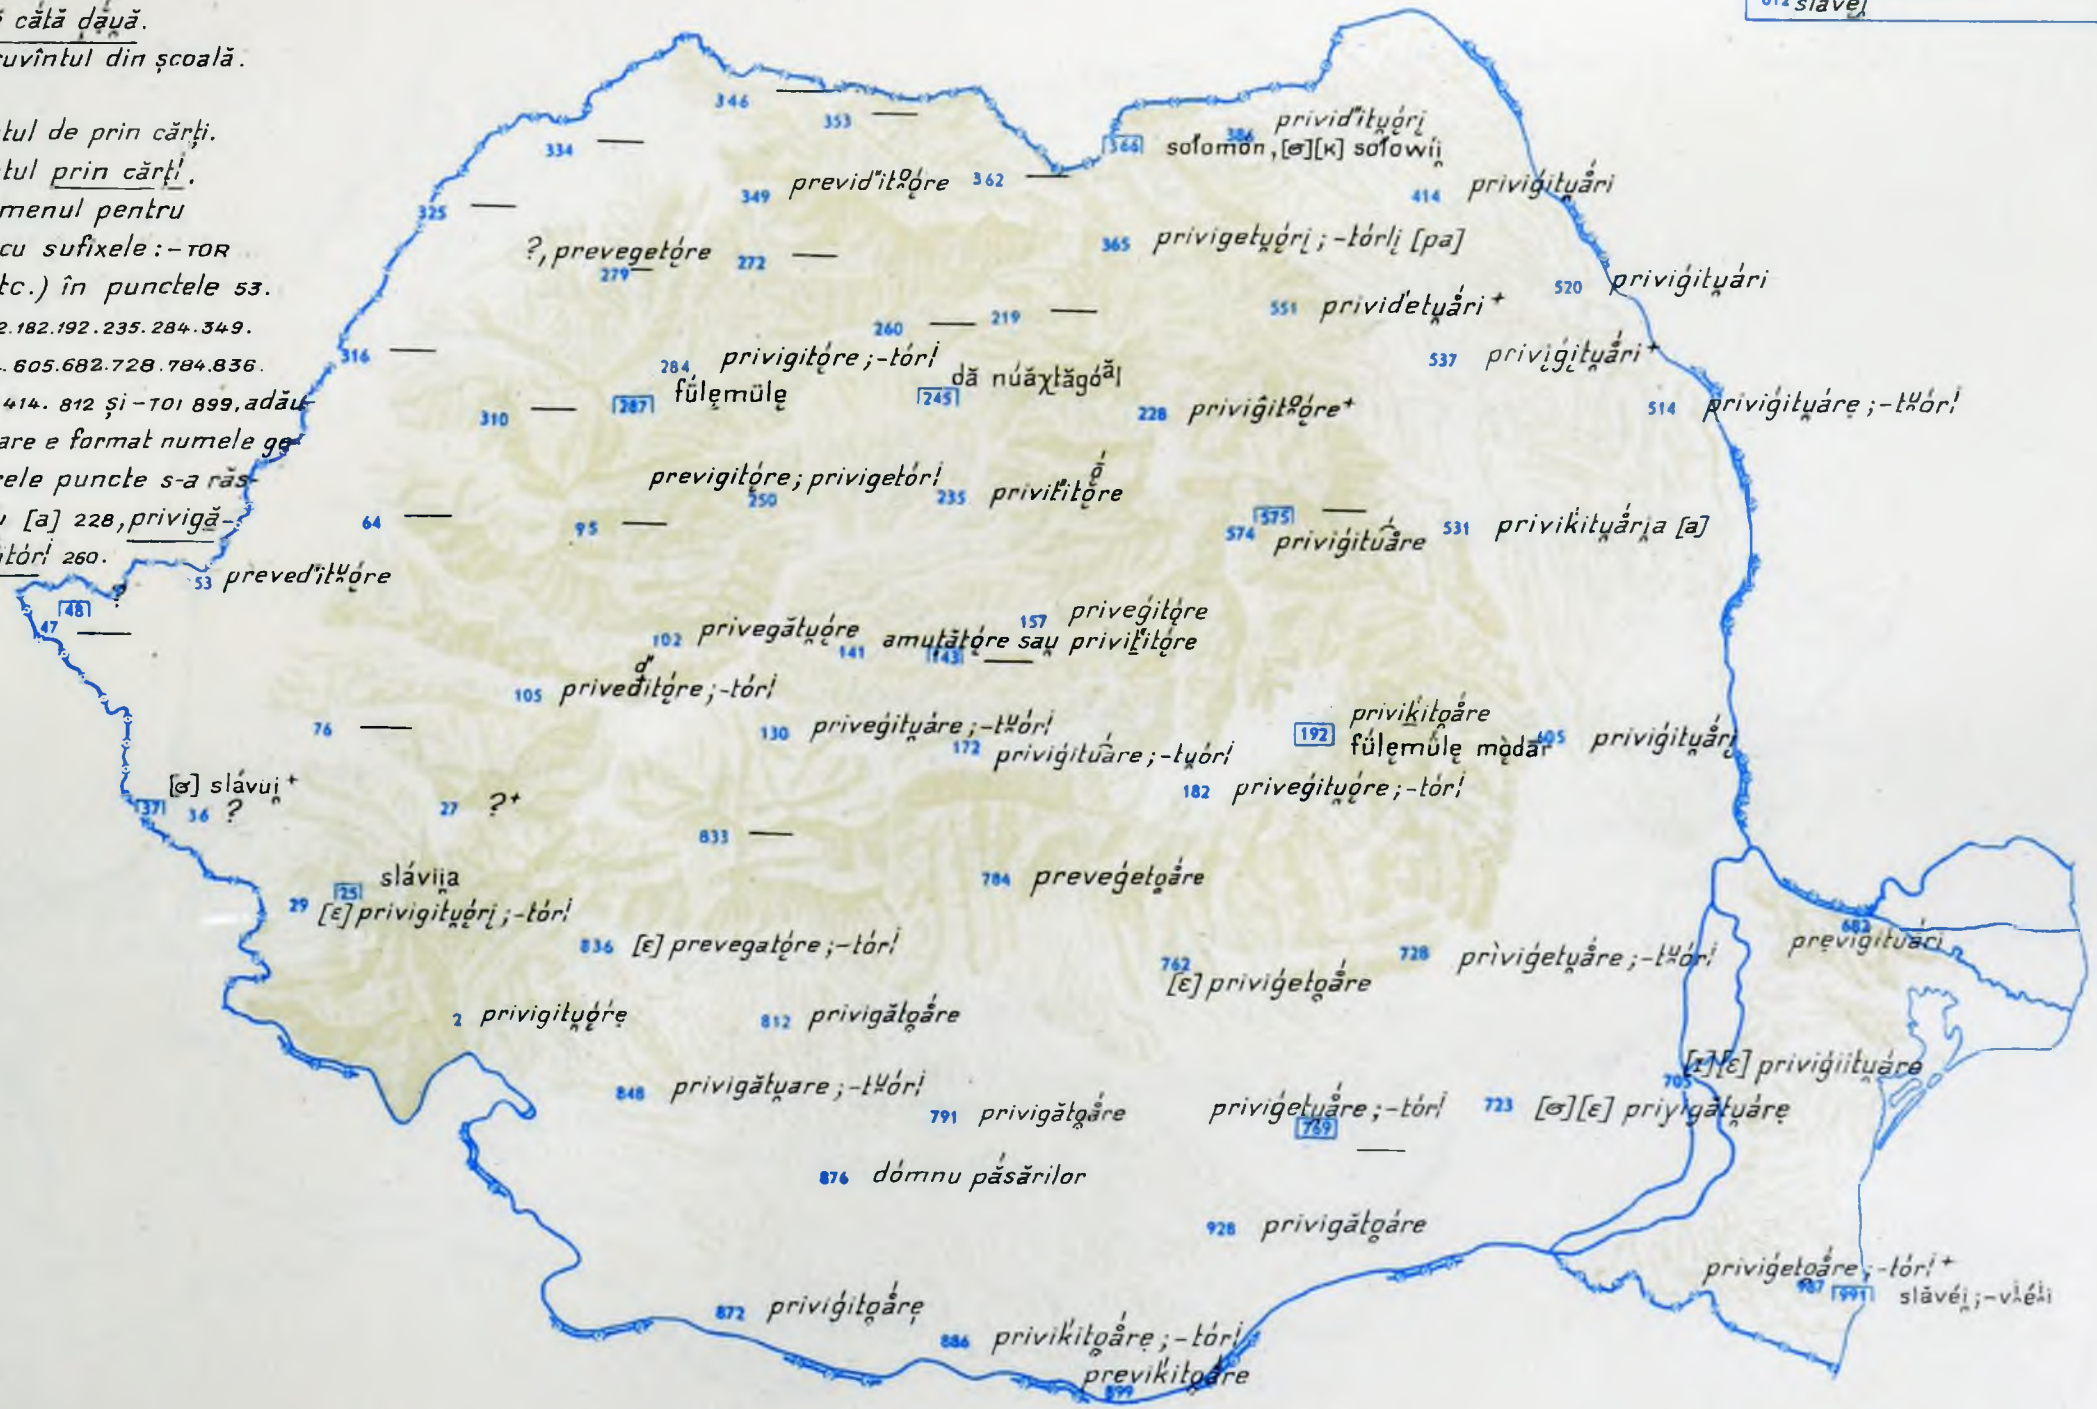 cătă dăuă.
uvîntul din școală.
tul de prin cărți.
tul prin cărți.
menul pentru
cu sufixele : – TOR
tc.) în punctele 53.
2.182.192.235.284.349.
. 605.682.728.784.836.
414. 812 și –TOI 899, adău-
are e format numele ge-
rele puncte s-a răs-
[a] 228, privigă-
tór! 260.
612 slavei̯
346 —
353 —
334 —
386 privid'itu̯óri̯
366 sołomón, [ɞ][ᴋ] sołowíi̯
349 previd'ito̯óre
362 —
414 priviǵitu̯ári
325 —
?, prevegetóre
279 —
272 —
365 privigetu̯óri̯ ; –tórli̯ [pa]
520 priviǵitu̯ári
551 privid'etu̯ári +
260 —
219 —
316 —
284 privigitóre ; –tór!
287 fǘlęmülę
245 dă núăχtăgóăl
537 privi̯ǵi̯tu̯ári +
310 —
228 priviĝito̯óre +
514 priviǵitu̯áre ; –tu̯ór!
previgitóre ; privigetór!
250
235 privit'itóre
64 —
95 —
575 —
574 priviǵitu̯áre
531 priviḱitu̯ári̯a [a]
53 preved'itu̯óre
48 ?
47 —
102 privegătu̯óre
157 priveǵitóre
141 amutătóre sau̯ privit'itóre
143 —
105 priveditóre ; –tór!
76 —
130 priveǵitu̯áre ; –tu̯ór!
172 priviǵituáre ; –tu̯ór!
192 priviḱito̯áre
fǘlęmülę mọdār
605 priviǵitu̯ári̯
182 priveǵitu̯óre ; –tór!
37 [ɞ] slávui̯ +
36 ?
27 ? +
833 —
25 slávii̯a
29 [ɛ] privigitu̯óri̯ ; –tór!
784 preveǵeto̯áre
836 [ɛ] prevegatóre ; –tór!
762 [ɛ] priviǵeto̯áre
728 prìviǵetu̯áre ; –tu̯ór!
682 pręvigituári
2 privigitu̯órę
812 privigăto̯áre
705 [ɪ][ɛ] priviǵiitu̯áre
848 privigătu̯are ; –tu̯ór!
791 privigăto̯áre
priviǵetu̯áre ; –tór!
769 —
723 [ɞ][ɛ] privigătu̯áre
876 dómnu păsărilor
928 privigăto̯áre
priviǵeto̯áre ; –tór! +
987
991 slăvéi̯ ; –vi̯éi̯i
872 priviǵito̯árę
886 priviḱito̯árę ; –tór!
previḱito̯áre
899